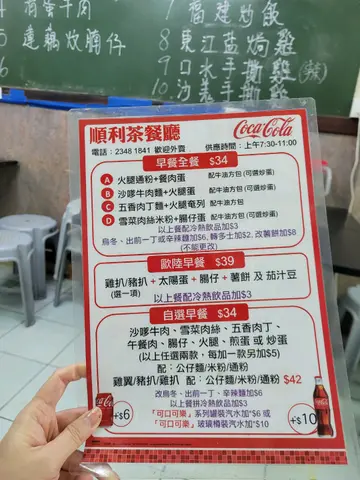 7 福建炒飯
5 蓮藕炆腩仔
8 東江鹽焗雞
9 口水手撕雞(辣)
6
10
順利茶餐廳
Coca-Cola
電話：2348 1841 歡迎外賣
供應時間：上午7:30-11:00
早餐全餐 $34
A 火腿通粉+餐肉蛋 配牛油方包(可選炒蛋)
B 沙嗲牛肉麵+火腿蛋 配牛油方包(可選炒蛋)
C 五香肉丁麵+火腿奄列 配牛油方包
D 雪菜肉絲米粉+腸仔蛋 配牛油方包(可選炒蛋)
以上餐配冷熱飲品加$3
烏冬、出前一丁或辛辣麵加$6, 轉多士加$2, 改薯餅加$8
(不能更改)
歐陸早餐 $39
雞扒/豬扒 + 太陽蛋 + 腸仔 + 薯餅 及 茄汁豆
(選一項)
以上餐配冷熱飲品加$3
自選早餐 $34
沙嗲牛肉、雪菜肉絲、五香肉丁、
午餐肉、腸仔、火腿、煎蛋 或 炒蛋
(以上任選兩款，每加一款另加$5)
配：公仔麵/米粉/通粉
雞翼/豬扒/雞扒 配：公仔麵/米粉/通粉 $42
改烏冬、出前一丁、辛辣麵加$6
以上餐拼冷熱飲品加$3
「可口可樂」系列罐裝汽水加$6 或
「可口可樂」玻璃樽裝汽水加$10
+$6
+$10